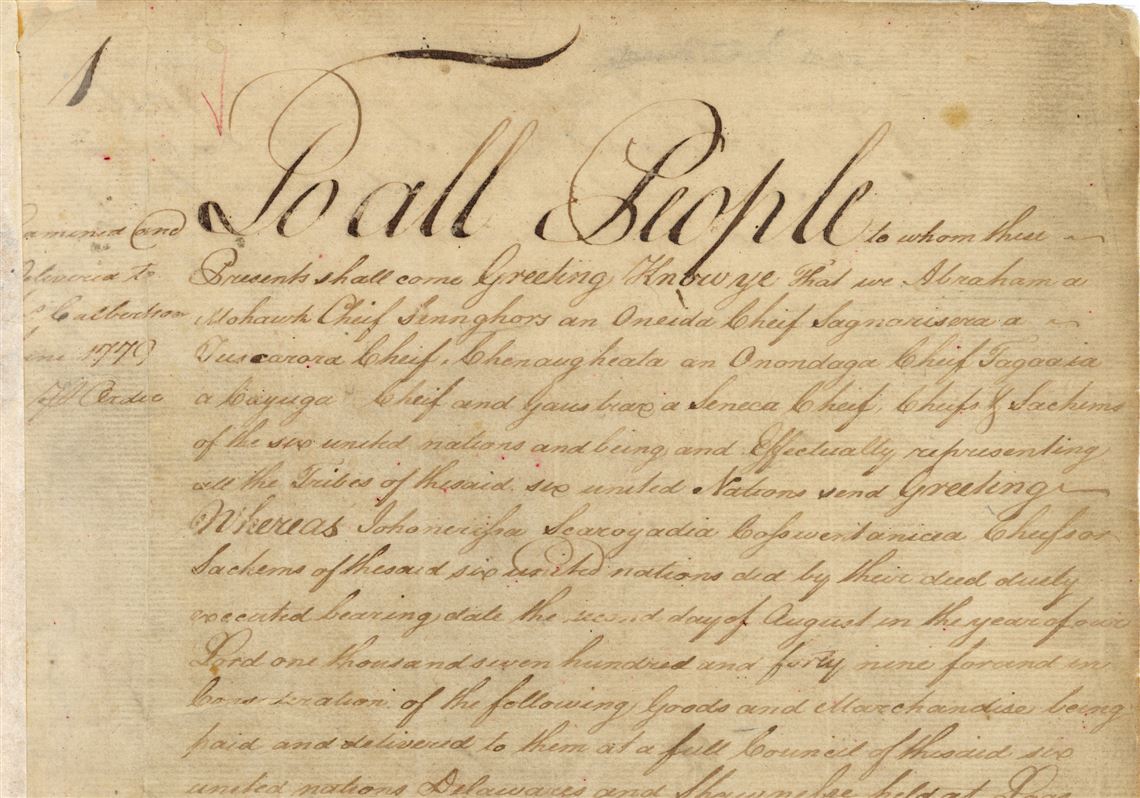 1
To all People to whom these
Presents shall come Greeting Know ye That we Abraham a
Mohawk Cheif Sennghors an Oneida Cheif Sagnarisera a
Tuscarora Cheif, Chenaugheata an Onondaga Cheif Tagaaia
a Cayuga Cheif and Gaustrax a Seneca Cheif, Cheifs & Sachems
of the six united nations and being and Effectually representing
all the Tribes of the said six united Nations send Greeting
Whereas Johonerissa Scaroyadia Cosswentanicea Cheifs or
Sachems of the said six united nations did by their deed duely
executed bearing date the second day of August in the year of our
Lord one thousand seven hundred and forty nine for and in
Consideration of the following Goods and Marchandise being
paid and delivered to them at a full Council of the said six
united nations Delawares and Shawnesse held at
amined and
Delivered to
Culbertson
1779